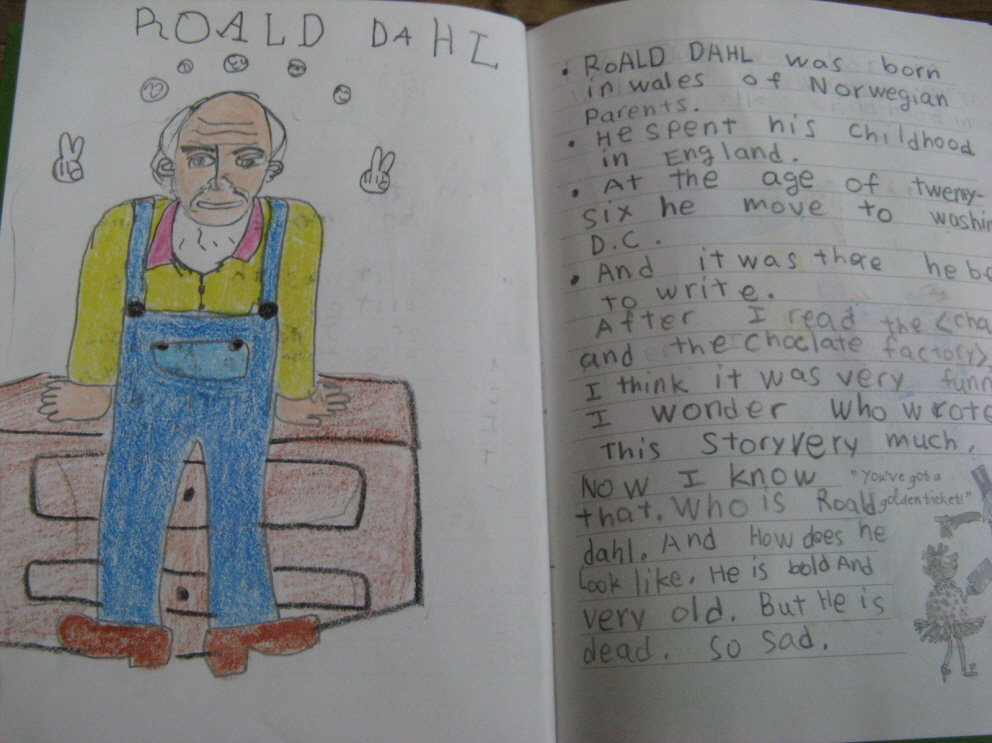 ROALD DAHL
• ROALD DAHL was born
in wales of Norwegian
Parents.
• He spent his childhood
in England.
• At the age of tweny-
six he move to washin
D.C.
• And it was there he be
to write.
After I read the <cha
and the choclate factory>,
I think it was very funn
I wonder who wrote
This Story very much.
Now I know
that. Who is Roald
dahl. And How does he
look like. He is bold And
very old. But He is
dead. So sad.
"You've got a
golden ticket!"